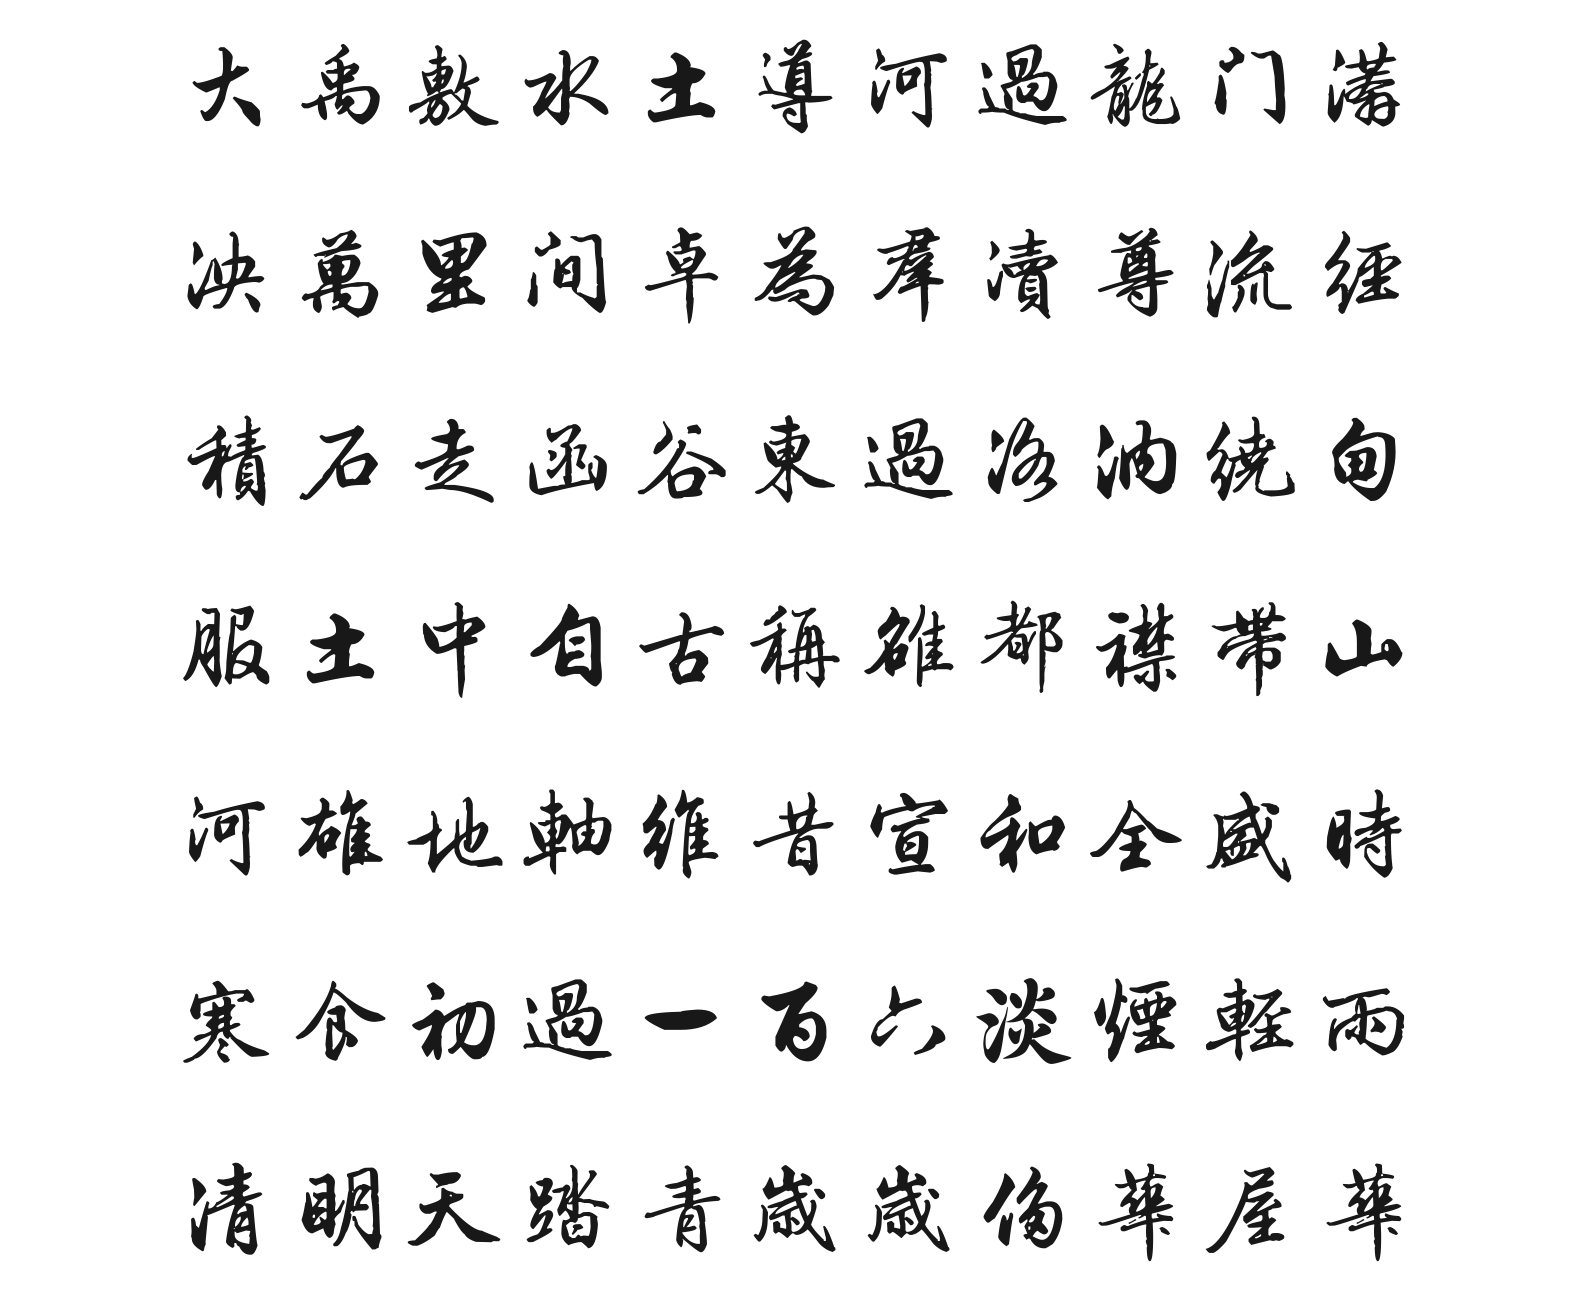 大禹敷水土導河過龍门
泱萬里间卓為羣瀆尊流經
積石走函谷東過洛汭繞甸
服土中自古稱雒都襟帶山
河雄地軸維昔宣和全盛時
寒食初過一百六淡煙軽雨
清明天踏青歳歳侈華屋華